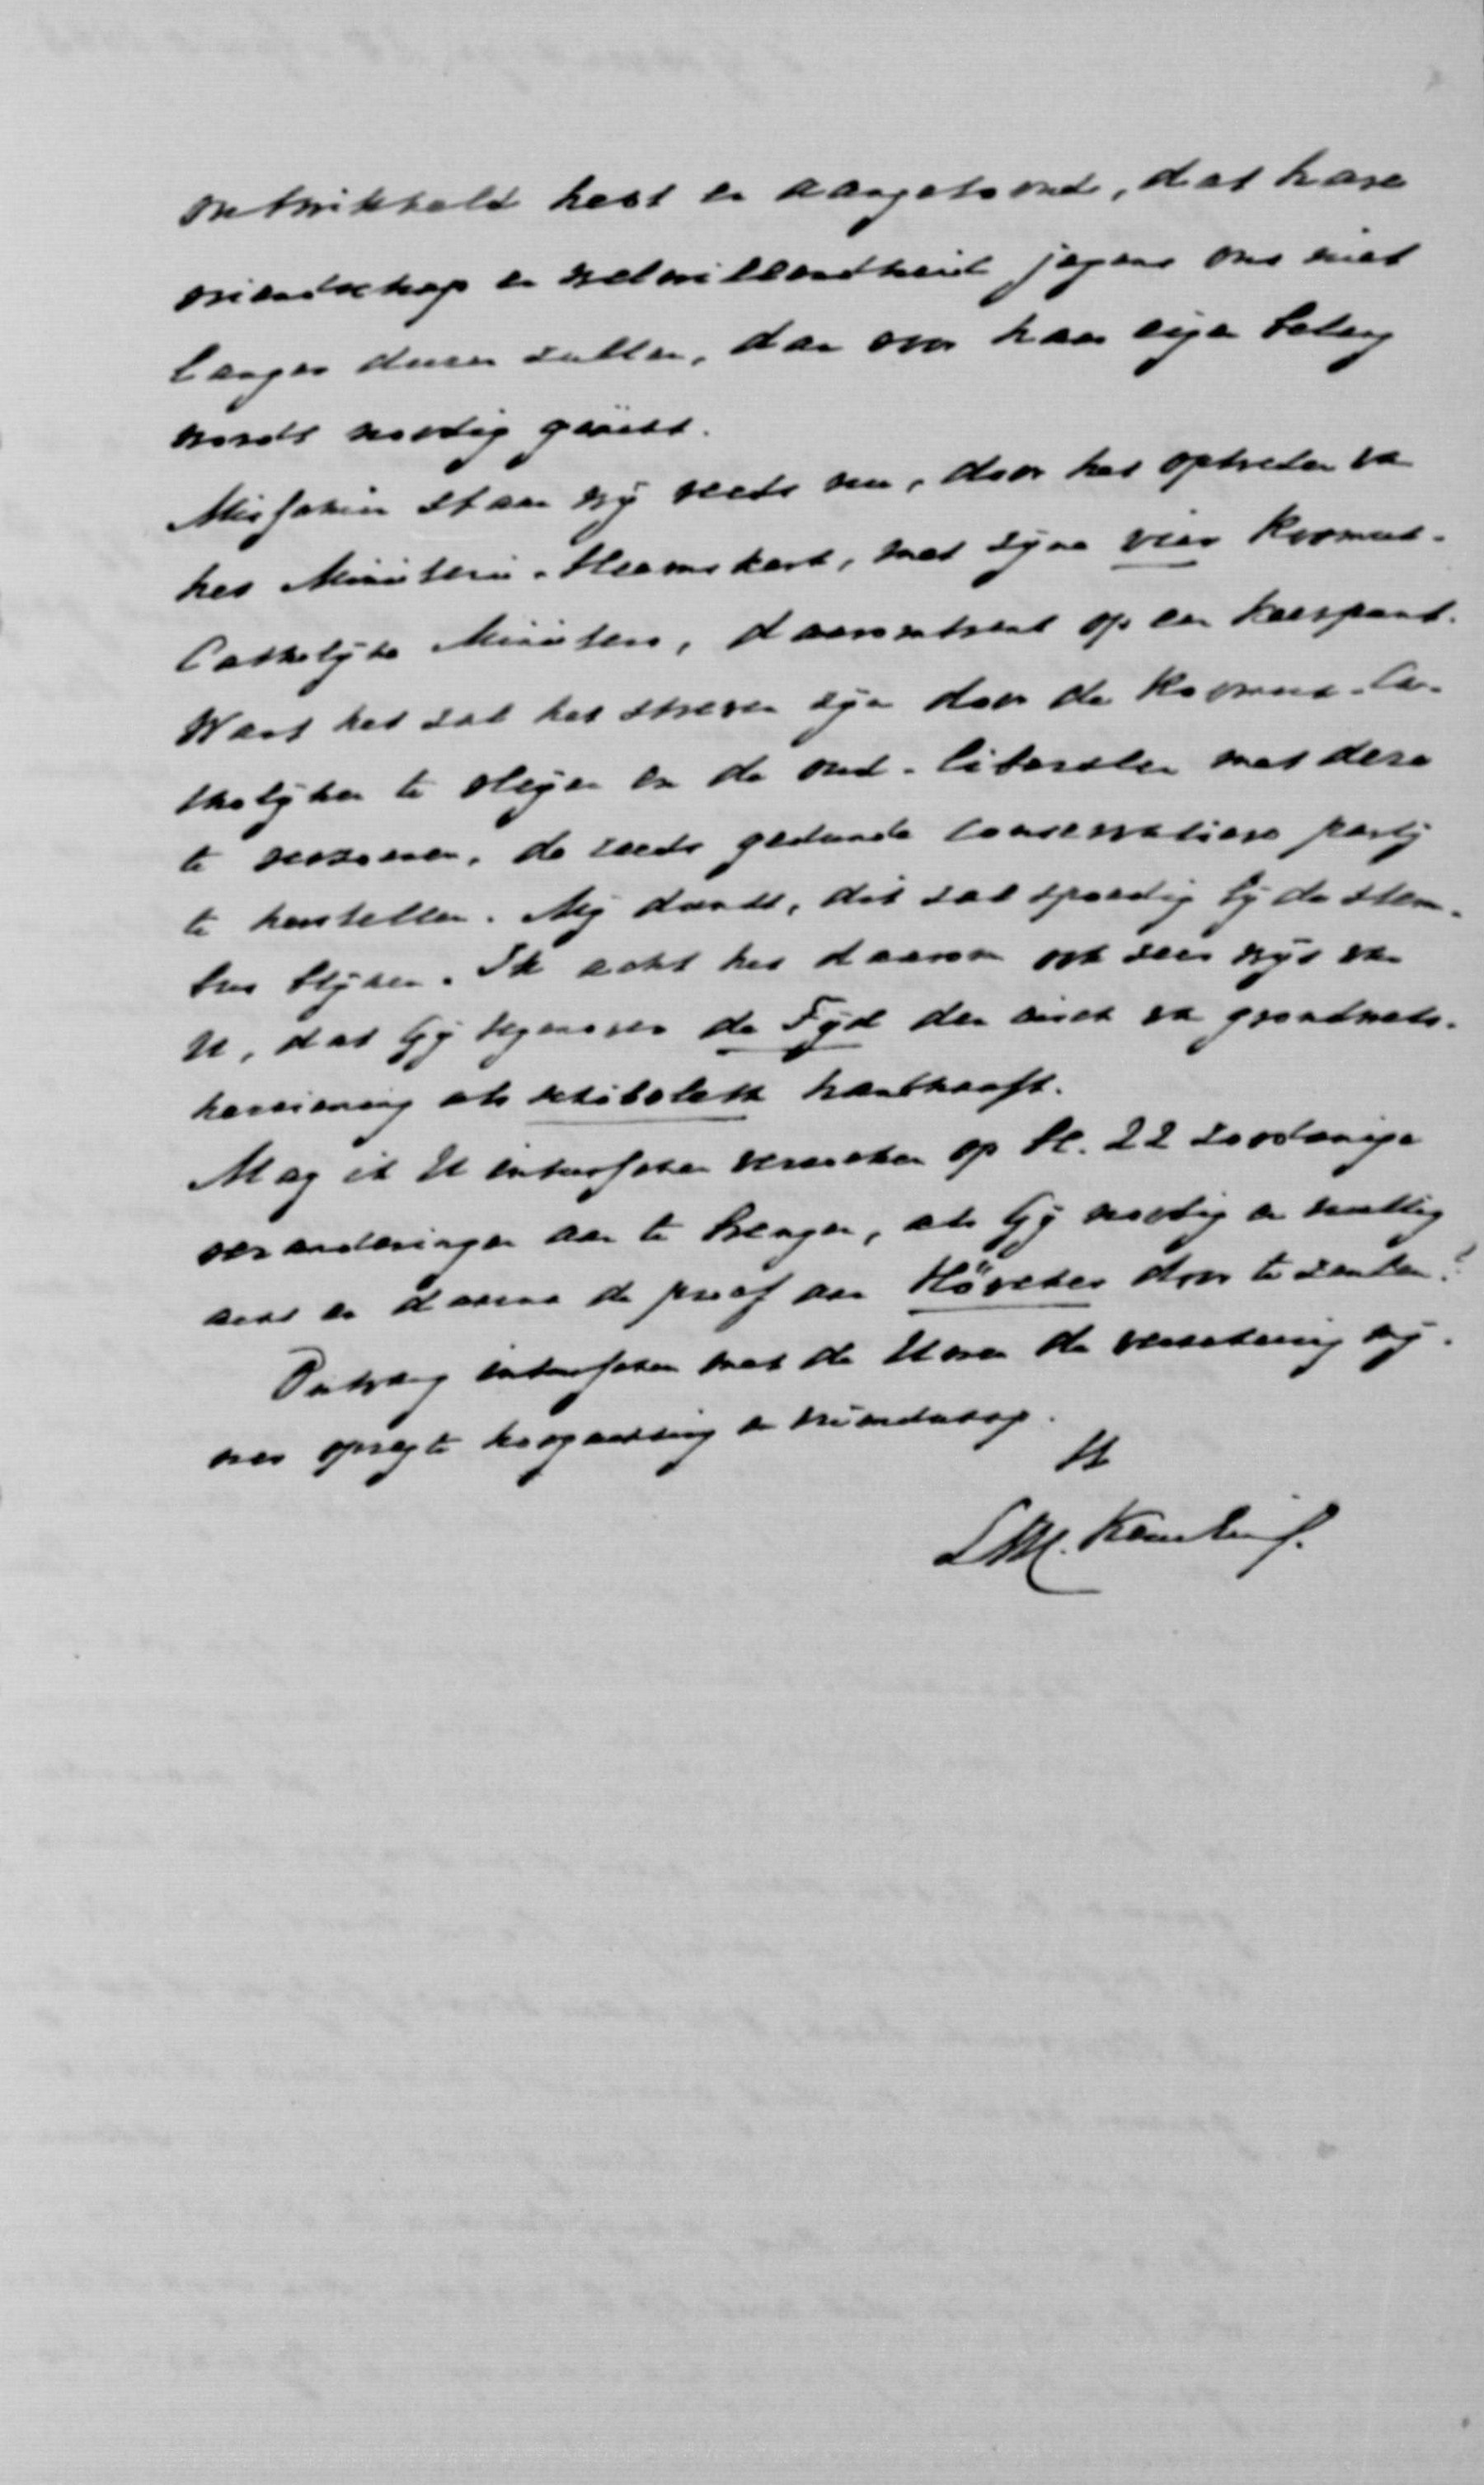 ontwikkeld hebt en aangetoond, dat hare
vriendschap en welwillendheid jegens ons niet
langer duren zullen, dan voor haar eigen belang
wordt noodig geacht.
Misschien staan wij reeds nu, door het optreden van
het Ministerie-Heemskerk, met zijne vier Roomsch-
Catholijke Ministers, daaromtrent op een keerpunt.
Want het zal het streven zijn door de Roomsch-Ca-
tholijken te vleijen en de oud-liberalen met deze
te verzoenen, de reeds gedoode conservatieve partij
te herstellen. Mij dunkt, dit zal spoedig bij de stem-
bus blijken. Ik acht het daarom ook zeer wijs van
U, dat Gij tegenover de Tijd den eisch van grondwets-
herziening als schibboleth handhaaft.
Mag ik U intusschen verzoeken op bl. 22 zoodanige
veranderingen aan te brengen, als Gij noodig en nuttig
acht en daarna de proef aan Höveker door te zenden?
Ontvang intusschen met de Uwen de verzekering mij-
ner opregte hoogachting en vriendschap.
L.W.C. Keuchenius.